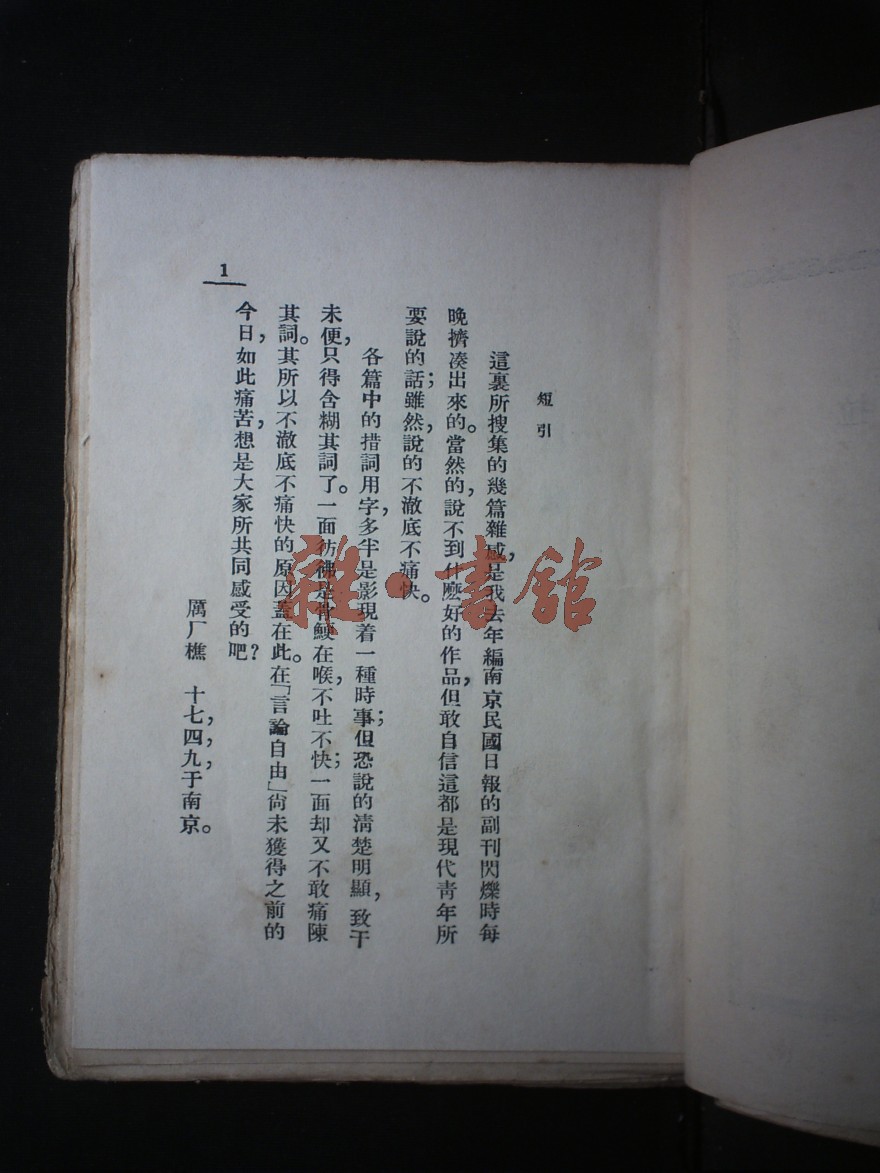 短引
這裏所搜集的幾篇雜感，是我去年編南京民國日報的副刊閃爍時每
晚擠凑出來的。當然的，說不到什麽好的作品，但敢自信這都是現代靑年所
要說的話；雖然說的不澈底不痛快。
各篇中的措詞用字，多半是影現着一種時事；但恐說的淸楚明顯，致干
未便，只得含糊其詞了。一面彷彿是骨鯁在喉，不吐不快；一面却又不敢痛陳
其詞。其所以不澈底不痛快的原因蓋在此。在「言論自由」尙未獲得之前的
今日，如此痛苦，想是大家所共同感受的吧？
厲厂樵　十七，四，九，于南京。
1
雜·書館